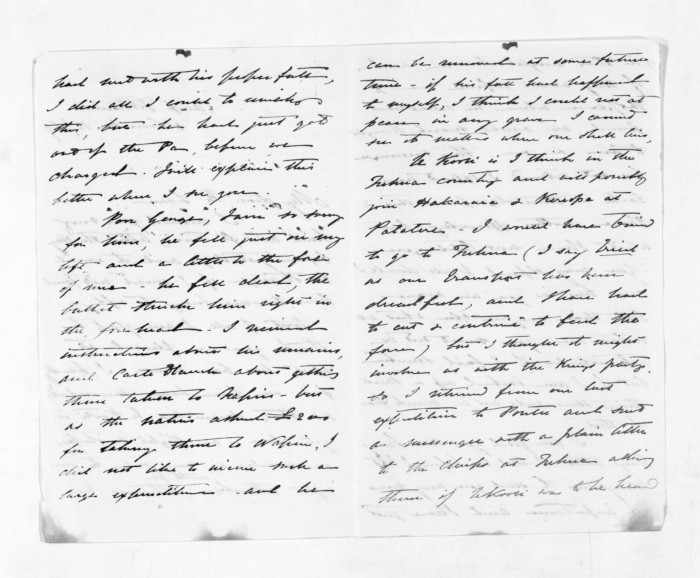 had met with his proper fate,
I did all I could to
this, but he had just got
out of the Pa, before we
charged. I will explain this
better when I see you.
"Poor George", I am so sorry
for him, he fell just on my
left and a little to the fore
of me - he fell dead, the
bullet struck him right in
the forehead. I received
instructions about his remains,
and Carte about getting
them taken to Napier - but
as the natives asked £200
for taking them to Napier, I
did not like to incur such a
large expenditure and he
can be removed at some future
time - if his fate had happened
to myself, I think I could not at
peace in any grave I cannot
see it matters where one shall lie,
Te Kooti is I think in the
Tuhua country and will possibly
join Hakaraia & Kereopa at
Patatere - I would have tried
to go to Tuhua (I say tried
as our transport has been
dreadful, and I have had
to cut & contrive to feed the
force) but I thought it might
involve us with the Kings party.
So I returned from our last
expedition to Poutu and sent
a messenger with a plain letter
to the chiefs at Tuhua asking
them if Te Kooti was to be